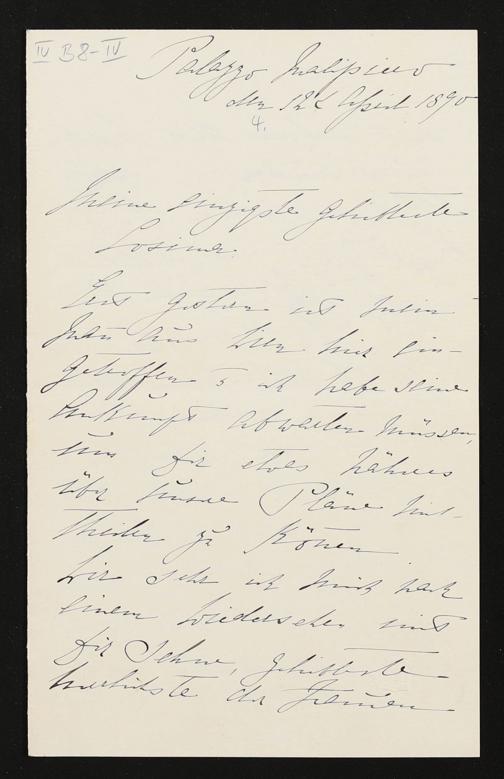 IV B8-IV
Palazzo Malipiero
den 12t April 1890
4.
Meine einzigste geliebteste
Cosima.
Erst gestern ist mein
Mann aus Wien hier ein-
getroffen & ich habe seine
Ankunft abwarten müssen,
um dir etwas näheres
über unsere Pläne mit-
theilen zu könen
Wie sehr ich mich nach
einem Wiedersehen mit
dir sehne, geliebteste
herrlichste der Frauen